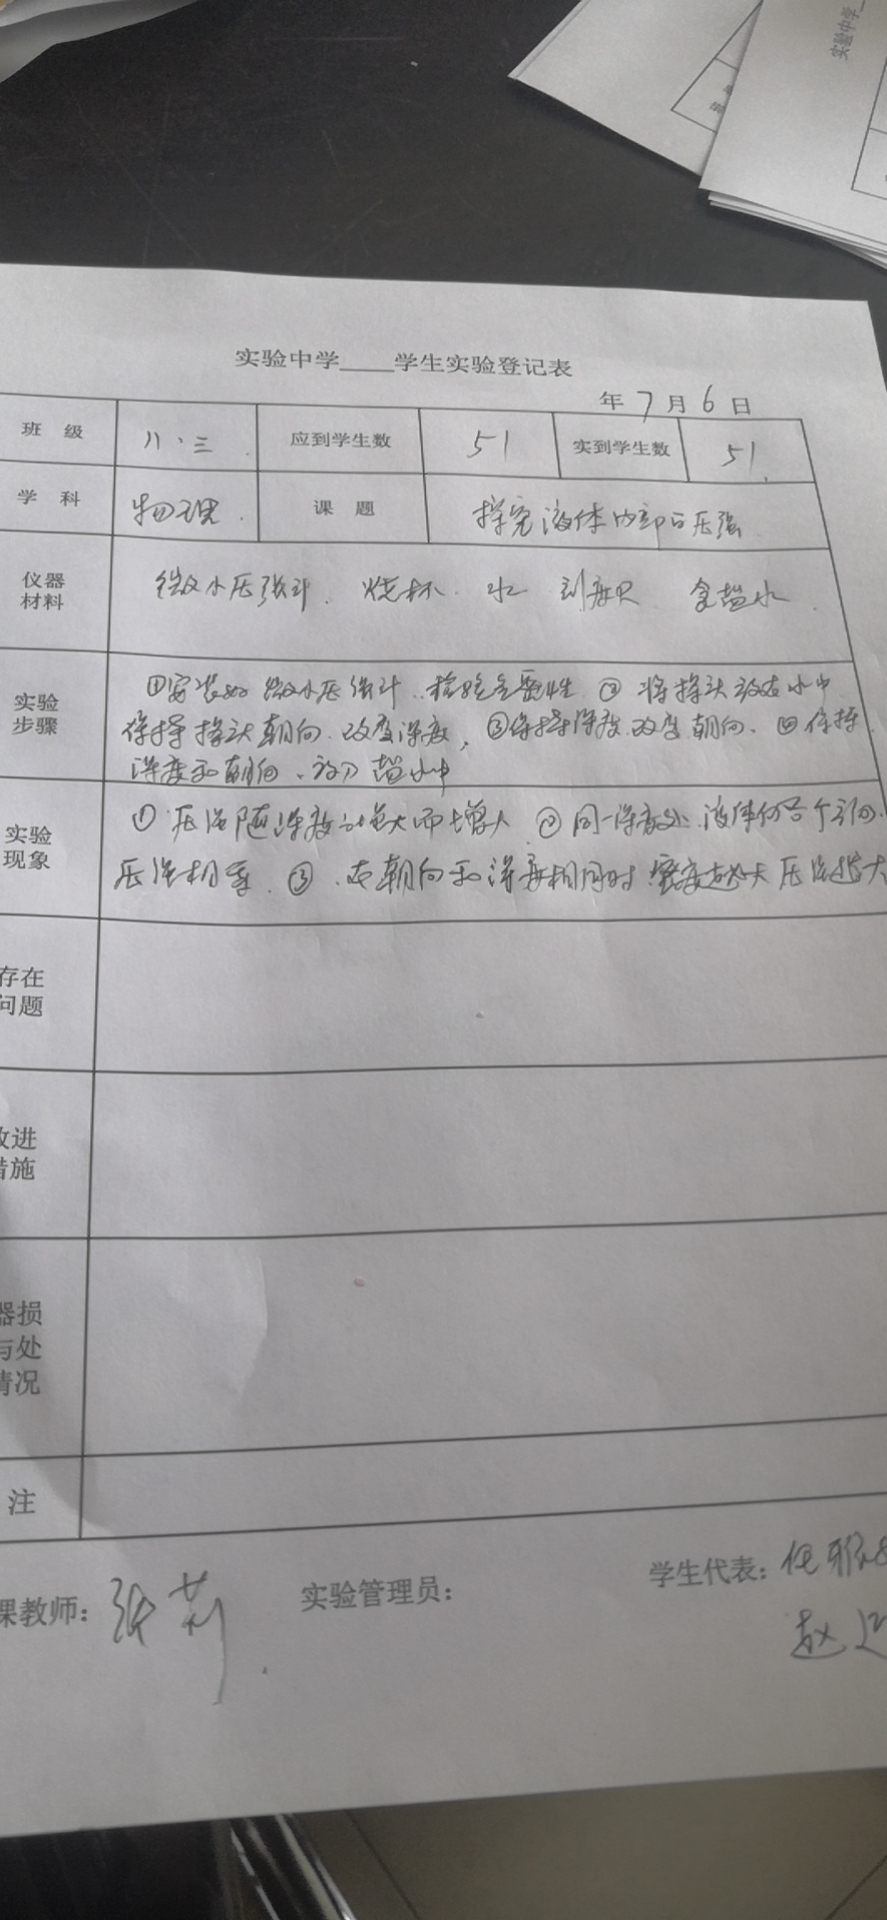 实验中学
实验中学____学生实验登记表
年 7 月 6 日
班 级 八·三 应到学生数 51 实到学生数 51
学 科 物理 课 题 探究液体内部的压强
仪器
材料
微小压强计 烧杯 水 刻度尺 食盐水
实验
步骤
①安装好微小压强计、检验气密性 ②将探头放在水中
保持探头朝向、改变深度, ③保持深度、改变朝向、④保持
深度和朝向、放入盐水中
实验
现象
①压强随深度的增大而增大 ②同一深度处、液体向各个方向
压强相等、③、在朝向和深度相同时 密度越大压强越大
存在
问题
改进
措施
器损
与处
情况
注
课教师: 张莉 实验管理员: 学生代表: 任雅
赵